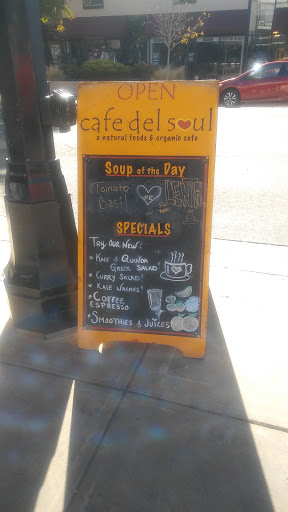 OPEN
cafe del soul
a natural foods & organic cafe
Soup of the Day
Tomato
Basil
SPECIALS
TRY OUR NEW:
* KALE & QUINOA
GREEK SALAD
* CURRY SALAD!
* KALE NACHOS!
* COFFEE
ESPRESSO
* SMOOTHIES & JUICES